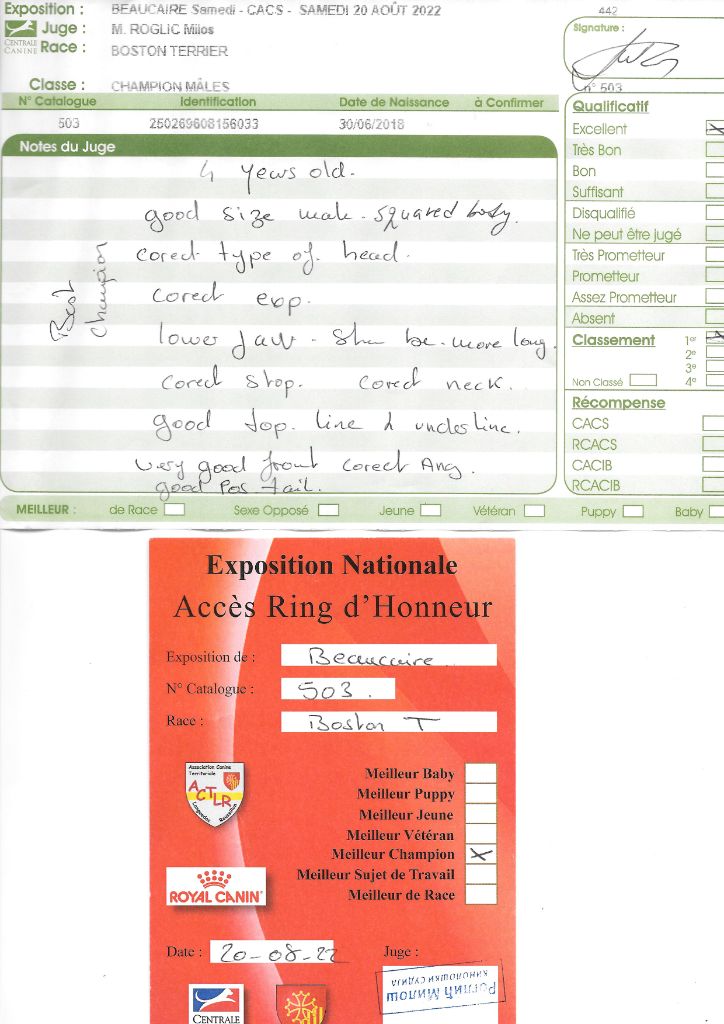 Exposition : BEAUCAIRE Samedi - CACS - SAMEDI 20 AOÛT 2022
442
Juge : M. ROGLIC Milos
CENTRALE CANINE
Race : BOSTON TERRIER
Signature :
Classe : CHAMPION MÂLES
n° 503
N° Catalogue Identification Date de Naissance à Confirmer
503 250269608156033 30/06/2018
Notes du Juge
4 years old.
good size male. squared body.
corect type of head.
corect exp.
lower jaw - be more long.
corect stop. corect neck.
good top. line & underline.
very good front corect Ang.
good pos tail.
Best Champion
Qualificatif
Excellent X
Très Bon
Bon
Suffisant
Disqualifié
Ne peut être jugé
Très Prometteur
Prometteur
Assez Prometteur
Absent
Classement 1er X
2e
3e
Non Classé 4e
Récompense
CACS
RCACS
CACIB
RCACIB
MEILLEUR : de Race Sexe Opposé Jeune Vétéran Puppy Baby
Exposition Nationale
Accès Ring d'Honneur
Exposition de : Beaucaire
N° Catalogue : 503.
Race : Boston T
Association Canine
Territoriale
ACTLR
Languedoc Roussillon
Meilleur Baby
Meilleur Puppy
Meilleur Jeune
Meilleur Vétéran
Meilleur Champion X
Meilleur Sujet de Travail
Meilleur de Race
ROYAL CANIN
Date : 20-08-22
Juge :
Роглић Милош
КИНОЛОШКИ СУДИЈА
CENTRALE